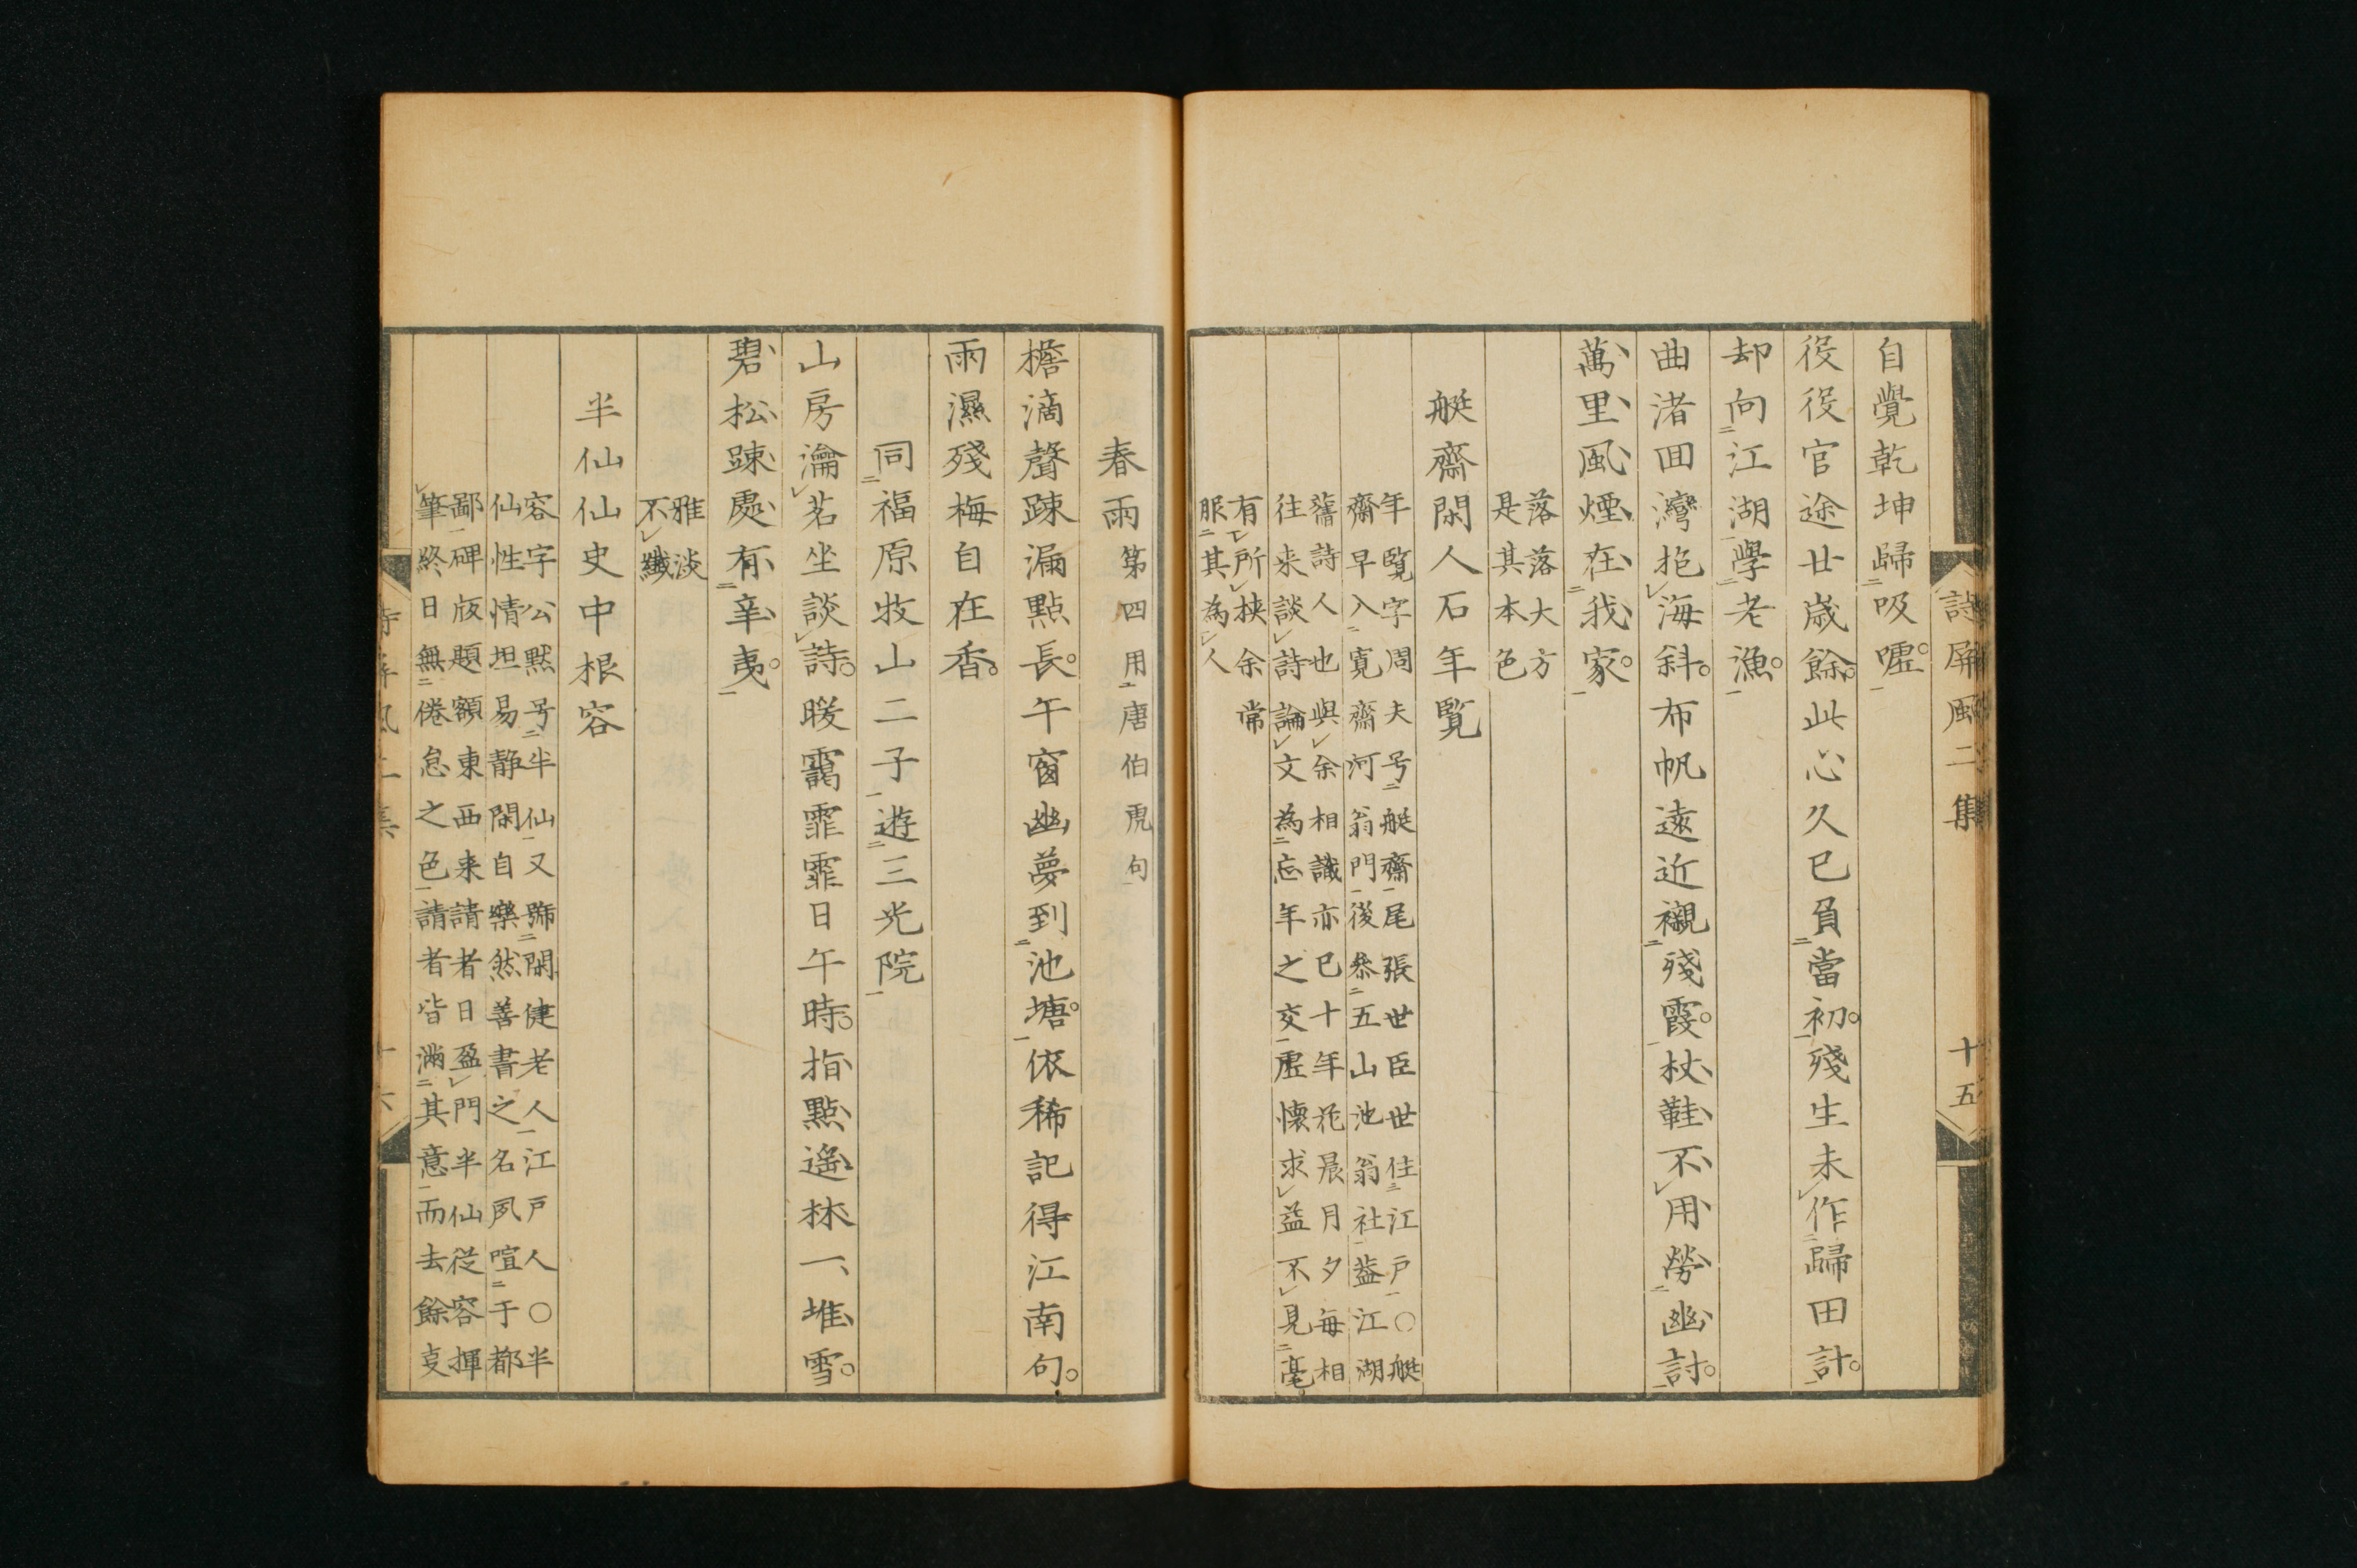 詩屏風二集 十五
自覺乾坤歸吸嘘。
役役官途廿歳餘。此心久已負當初。殘生未作歸田計。
却向江湖學老漁。
曲渚回灣抱海斜。布帆遠近襯殘霞。杖鞋不用勞幽討。
萬里風煙在我家。
落落大方
是其本色
艇齋閑人石年覽
年覽字周夫号艇齋尾張世臣世住江戸〇艇
齋早入寛齋河翁門後參五山池翁社益江湖
舊詩人也與余相識亦已十年花晨月夕毎相
往来談詩論文為忘年之交虛懷求益不見毫
有所挾余常
服其為人
春雨第四用唐伯虎句
檐滴聲踈漏點長。午窗幽夢到池塘。依稀記得江南句。
雨濕殘梅自在香。
同福原牧山二子遊三光院
山房瀹茗坐談詩。暖靄霏霏日午時。指點遙林一堆雪。
碧松踈處有辛夷。
雅淡
不纖
半仙仙史中根容
容字公默号半仙又號閑健老人江戸人〇半
仙性情坦易静閑自樂然善書之名夙喧于都
鄙碑版題額東西来請者日盈門半仙從容揮
筆終日無倦怠之色請者皆滿其意而去餘